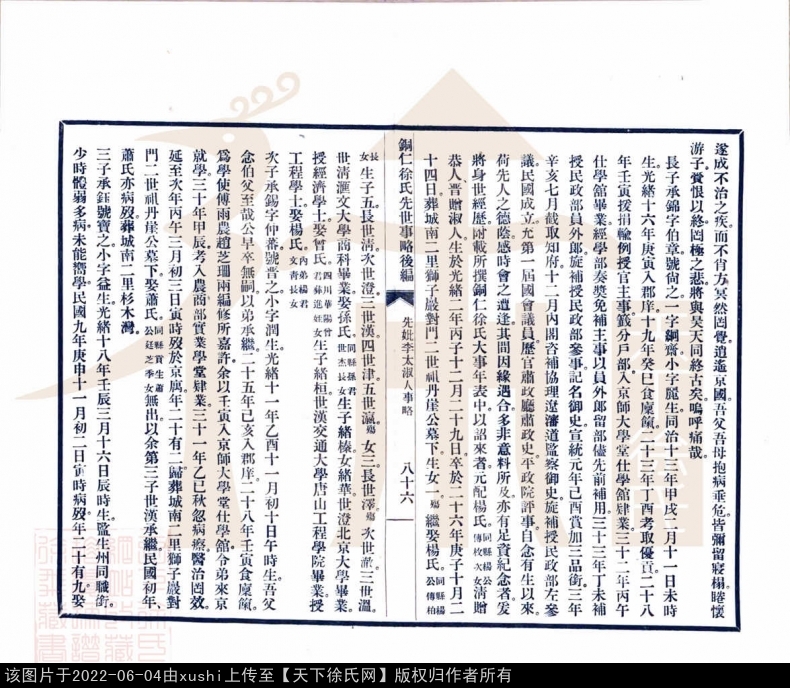 遂成不治之疾而不肖方冥然罔覺逍遙京國吾父吾母抱病垂危皆彌留寢榻睠懷
游子賫恨以終罔極之悲將與昊天同終古矣嗚呼痛哉
長子承錦字伯章號尙之一字絅齋小字麗生同治十三年甲戌二月十一日未時
生光緒十六年庚寅入郡庠十九年癸巳食廩餼二十三年丁酉考取優貢二十八
年壬寅援捐輸例授官主事籤分戶部入京師大學堂仕學館肄業三十二年丙午
仕學館畢業經學部奏獎免補主事以員外郎留部儘先前補用三十三年丁未補
授民政部員外郎旋補授民政部參事記名御史宣統元年己酉賞加三品銜三年
辛亥七月截取知府十二月內閣咨補協理遼瀋道監察御史旋補授民政部左參
議民國成立充第一屆國會議員歷官肅政廳肅政史平政院評事自念有生以來
荷先人之德蔭感時會之遭逢其間因緣遇合多非意料所及亦有足資紀念者爰
將身世經歷附載所撰銅仁徐氏大事年表中以詔來者元配楊氏同縣楊公傳枚次女淸贈
恭人晋贈淑人生於光緒二年丙子十二月二十九日卒於二十六年庚子十月二
十四日葬城南二里獅子巖對門二世祖丹崖公墓下生女一殤繼娶楊氏同縣楊公傳柏
銅仁徐氏先世事略後編 先妣李太淑人事略 八十六
長女生子五長世清次世澄三世漢四世津五世瀛殤女三長世澤殤次世㴑三世溫
世清滙文大學商科畢業娶孫氏同縣孫君世杰長女生子緖榛女緖華世澄北京大學畢業
授經濟學士娶曾氏四川華陽曾君彝進姪女生子緖桓世漢交通大學唐山工程學院畢業授
工程學士娶楊氏內弟楊君文靑長女
次子承錫字仲蕃號晋之小字潤生光緒十一年乙酉十一月初十日午時生吾父
念伯父至哉公早卒無嗣以弟承繼二十五年己亥入郡庠二十八年壬寅食廩餼
爲學使傅雨農趙芝珊兩編修所嘉許余以壬寅入京師大學堂仕學館令弟來京
就學三十年甲辰考入農商部實業學堂肄業三十一年乙巳秋忽病瘵醫治罔效
延至次年丙午三月初三日寅時歿於京寓年二十有二歸葬城南二里獅子巖對
門二世祖丹崖公墓下娶蕭氏同縣貢生蕭公廷芝季女無出以余第三子世漢承繼民國初年
蕭氏亦病歿葬城南二里杉木灣
三子承鉦號寶之小字益生光緒十八年壬辰三月十六日辰時生監生州同職銜
少時體弱多病未能嚮學民國九年庚申十一月初二日寅時病歿年二十有九娶
该图片于2022-06-04由xushi上传至【天下徐氏网】版权归作者所有